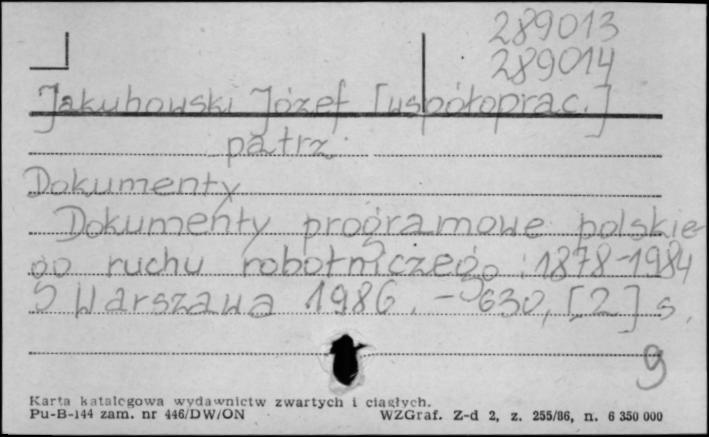 289013
289014
Jakubowski Józef [współoprac.]
patrz
Dokumenty
Dokumenty programowe polskie-
go ruchu robotniczego : 1878-1984
Warszawa 1986. - 630, [2] s.
9
Karta katalogowa wydawnictw zwartych i ciągłych.
Pu-B-144 zam. nr 446/DW/ON WZGraf. Z-d 2, z. 255/86, n. 6 350 000